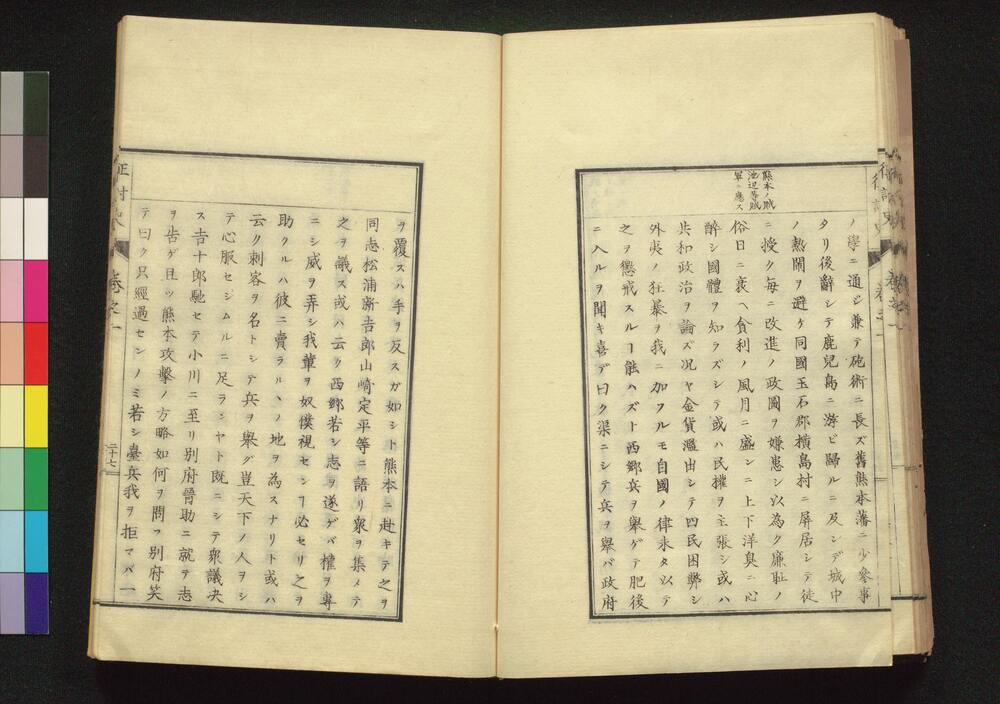 熊本ノ賊
池辺等賊
軍ニ應ス
ノ學ニ通ジ兼テ砲術ニ長ズ舊熊本藩ニ少參事
タリ後辭シテ鹿兒島ニ游ビ歸ルニ及ンデ城中
ノ熱閙ヲ避ケ同國玉名郡横島村ニ屏居シテ徒
ニ授ク毎ニ改進ノ政圖ヲ嫌悪シ以為ク廉耻ノ
俗日ニ衰ヘ貪利ノ風月ニ盛ンニ上下洋臭ニ心
醉シ國體ヲ知ラズシテ或ハ民權ヲ主張シ或ハ
共和政治ヲ論ズ况ヤ金貨濫出シテ四民困弊シ
外夷ノ狂暴ヲ我ニ加フルモ自國ノ律未タ以テ
之ヲ懲戒スルヿ能ハズト西郷兵ヲ舉ゲテ肥後
ニ入ルヲ聞キ喜デ曰ク渠ニシテ兵ヲ舉バ政府
ヲ覆スハ手ヲ反スガ如シト熊本ニ赴キテ之ヲ
同志松浦新吉郎山﨑定平等ニ語リ衆ヲ集メテ
之ヲ議ス或ハ云ク西郷若シ志ヲ遂ゲバ權ヲ專
ニシ威ヲ弄シ我輩ヲ奴僕視センヿ必セリ之ヲ
助クルハ彼ニ賣ラルヽノ地ヲ為スナリト或ハ
云ク刺客ヲ名トシテ兵ヲ舉グ豈天下ノ人ヲシ
テ心服セシムルニ足ランヤト既ニシテ衆議决
ス吉十郎馳セテ小川ニ至リ別府晉助ニ就テ志
ヲ告ゲ且ツ熊本攻擊ノ方略如何ヲ問フ別府笑
テ曰ク只經過センノミ若シ臺兵我ヲ拒マバ一
卷之一
二十七